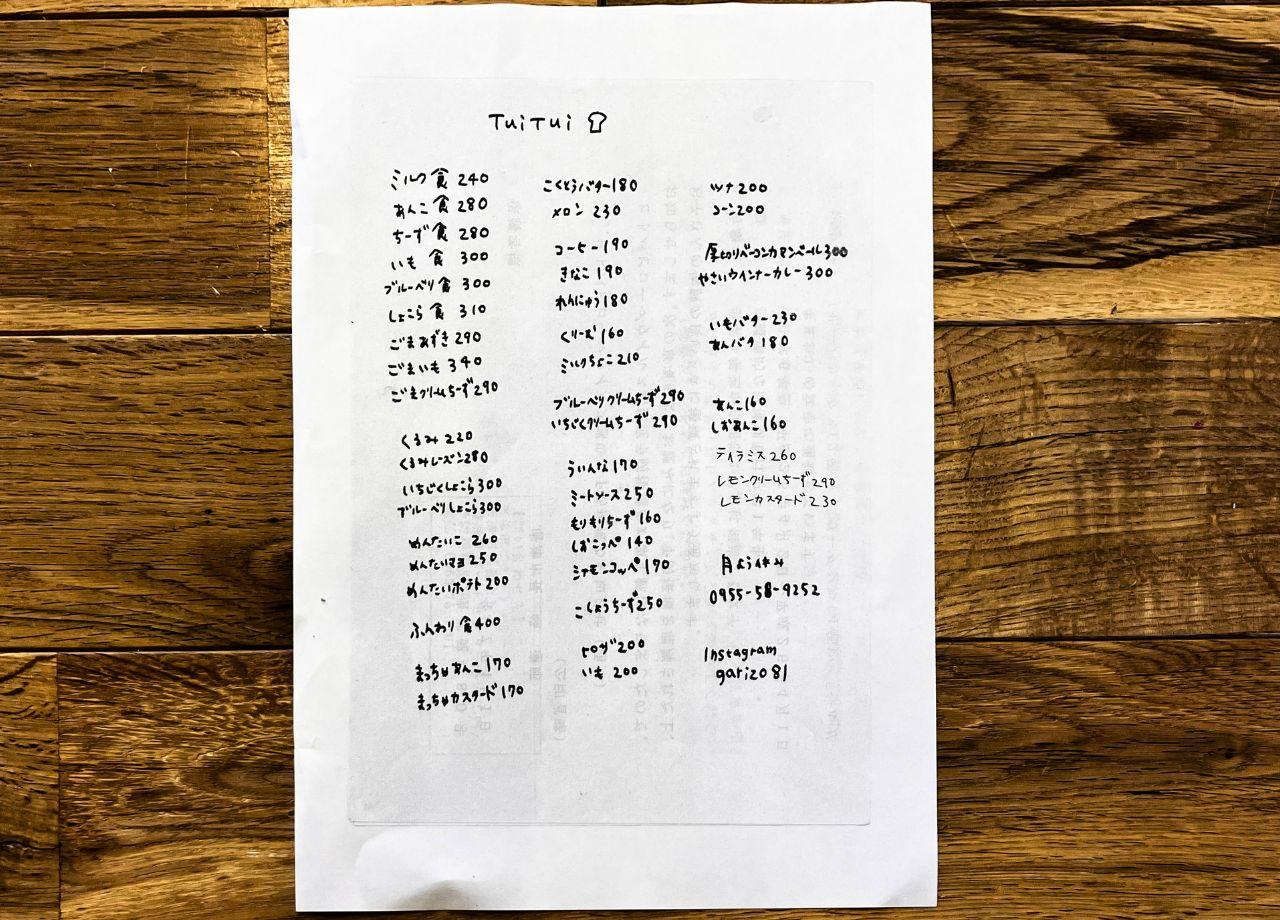 TuiTui
ミルク食 240
あんこ食 280
ちーず食 280
いも食 300
ブルーベリ食 300
しょこら食 310
ごまあずき 290
ごまいも 340
ごまクリームちーず 290
くるみ 220
くるみレーズン 280
いちじくしょこら 300
ブルーベリしょこら 300
めんたいこ 260
めんたいマヨ 250
めんたいポテト 200
ふんわり食 400
まっちゃあんこ 170
まっちゃカスタード 170
こくとうバター 180
メロン 230
コーヒー 190
きなこ 190
れんにゅう 180
くりーむ 160
ミルクちょこ 210
ブルーベリクリームちーず 290
いちじくクリームちーず 290
ういんな 170
ミートソース 250
もりもりちーず 160
しおこっぺ 140
シナモンコッペ 170
こしょうちーず 250
ドッグ 200
いも 200
ツナ 200
コーン 200
厚切りベーコンカマンベール 300
やさいウインナーカレー 300
いもバター 230
あんバタ 180
あんこ 160
しおあんこ 160
ティラミス 260
レモンクリームちーず 290
レモンカスタード 230
月よう休み
0955-58-9252
Instagram
garizo81